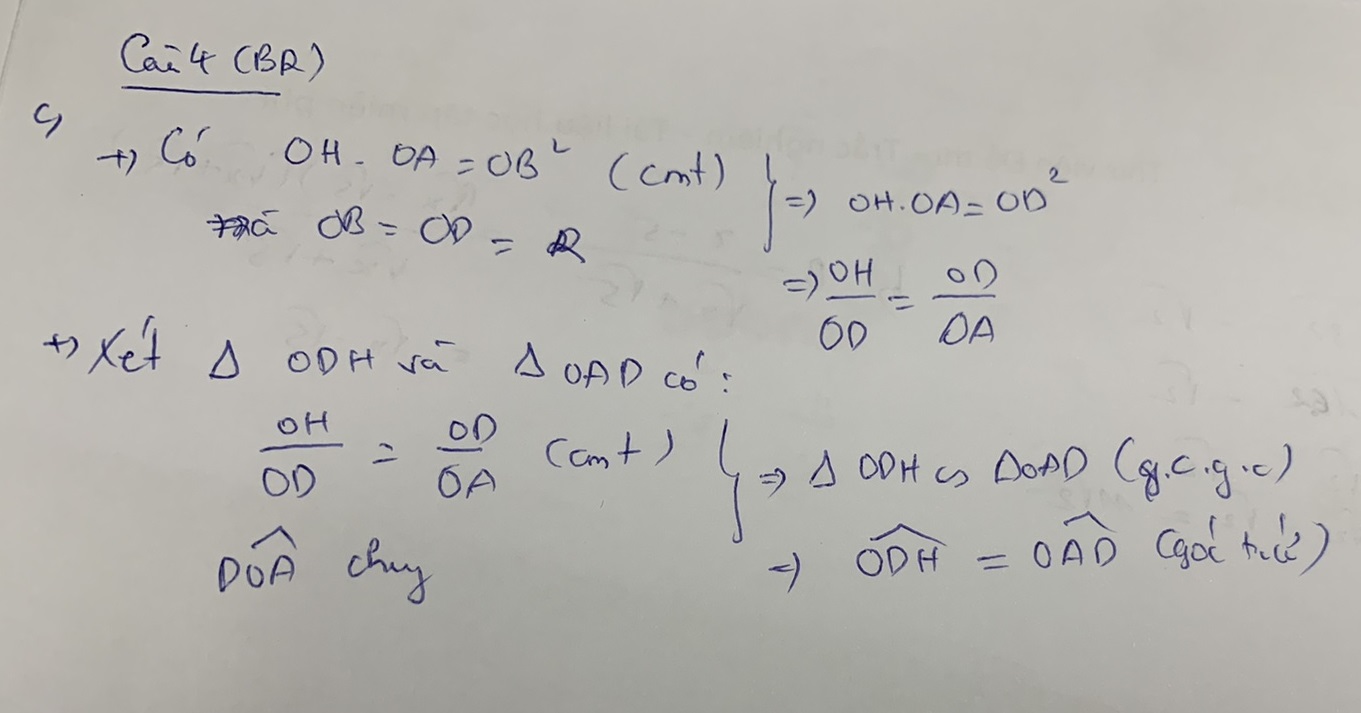 Câu 4 (BR)
c,
+, Có OH . OA = OB² (cmt)
mà OB = OD = R
=> OH.OA = OD²
=> OH/OD = OD/OA
+, Xét Δ ODH và Δ OAD có:
OH/OD = OD/OA (cmt)
DOA chung
=> Δ ODH ∽ ΔOAD (g.c.g.c)
=> ODH = OAD (góc t.ứ)